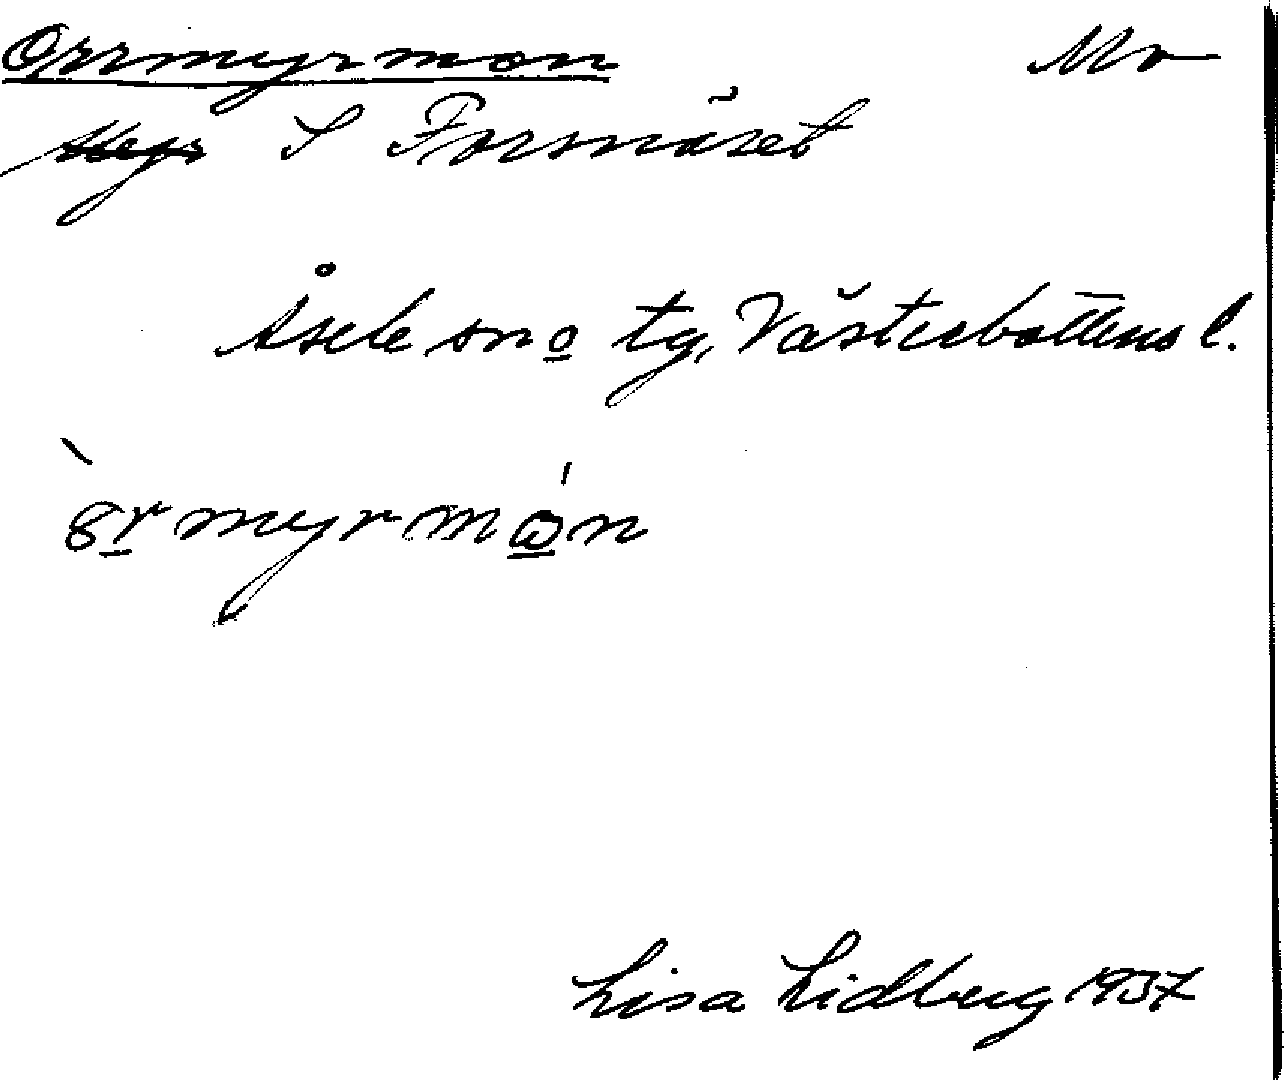 Orrmyrmon Mo
S Formäset
Åsele sn o tg, Västerbottens l.
`8r myr mω'n
Lisa Lidberg 1937